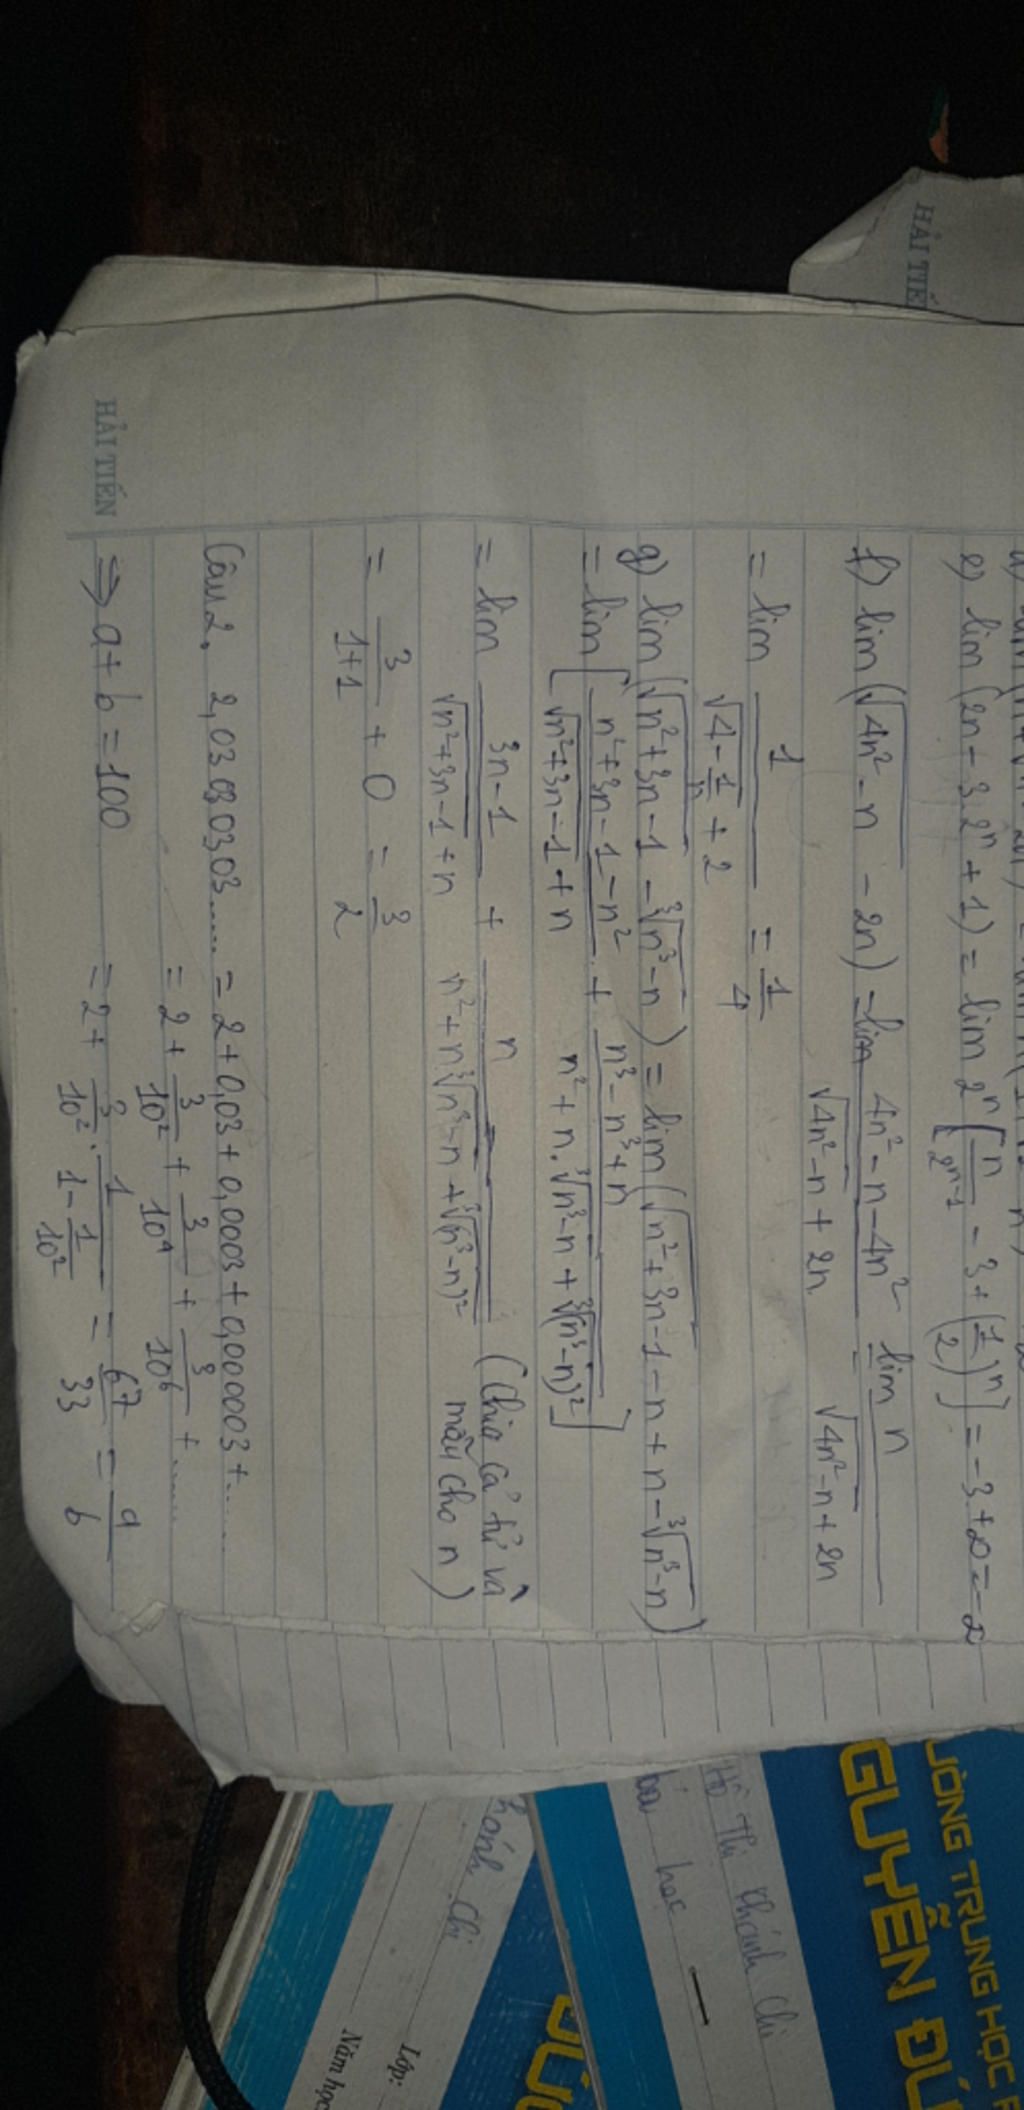 e) lim (2n - 3.2ⁿ + 1) = lim 2ⁿ [n/2ⁿ⁻¹ - 3 + (1/2)ⁿ] = -3 + ∞ = -∞
f) lim (√(4n² - n) - 2n) = lim (4n² - n - 4n²)/(√(4n² - n) + 2n) = lim n/(√(4n² - n) + 2n)
= lim 1/(√(4 - 1/n) + 2) = 1/4
g) lim (√(n² + 3n - 1) - ∛(n³ - n)) = lim (√(n² + 3n - 1) - n + n - ∛(n³ - n))
= lim [(n² + 3n - 1 - n²)/(√(n² + 3n - 1) + n) + (n³ - n³ + n)/(n² + n.∛(n³ - n) + ∛(n³ - n)²)]
= lim (3n - 1)/(√(n² + 3n - 1) + n) + n/(n² + n∛(n³ - n) + ∛(n³ - n)²) (Chia cả tử và mẫu cho n)
= 3/(1 + 1) + 0 = 3/2
Câu 2. 2,03030303..... = 2 + 0,03 + 0,0003 + 0,000003 + ......
= 2 + 3/10² + 3/10⁴ + 3/10⁶ + ......
= 2 + 3/10² . 1/(1 - 1/10²) = 67/33 = a/b
⇒ a + b = 100
HẢI TIẾN
HẢI TIẾ
ƯỜNG TRUNG HỌC P
GUYỄN ĐỨ
Hồ Thị Khánh Chi
học
Khánh Chi
Lớp:
Năm học
ĐỨC